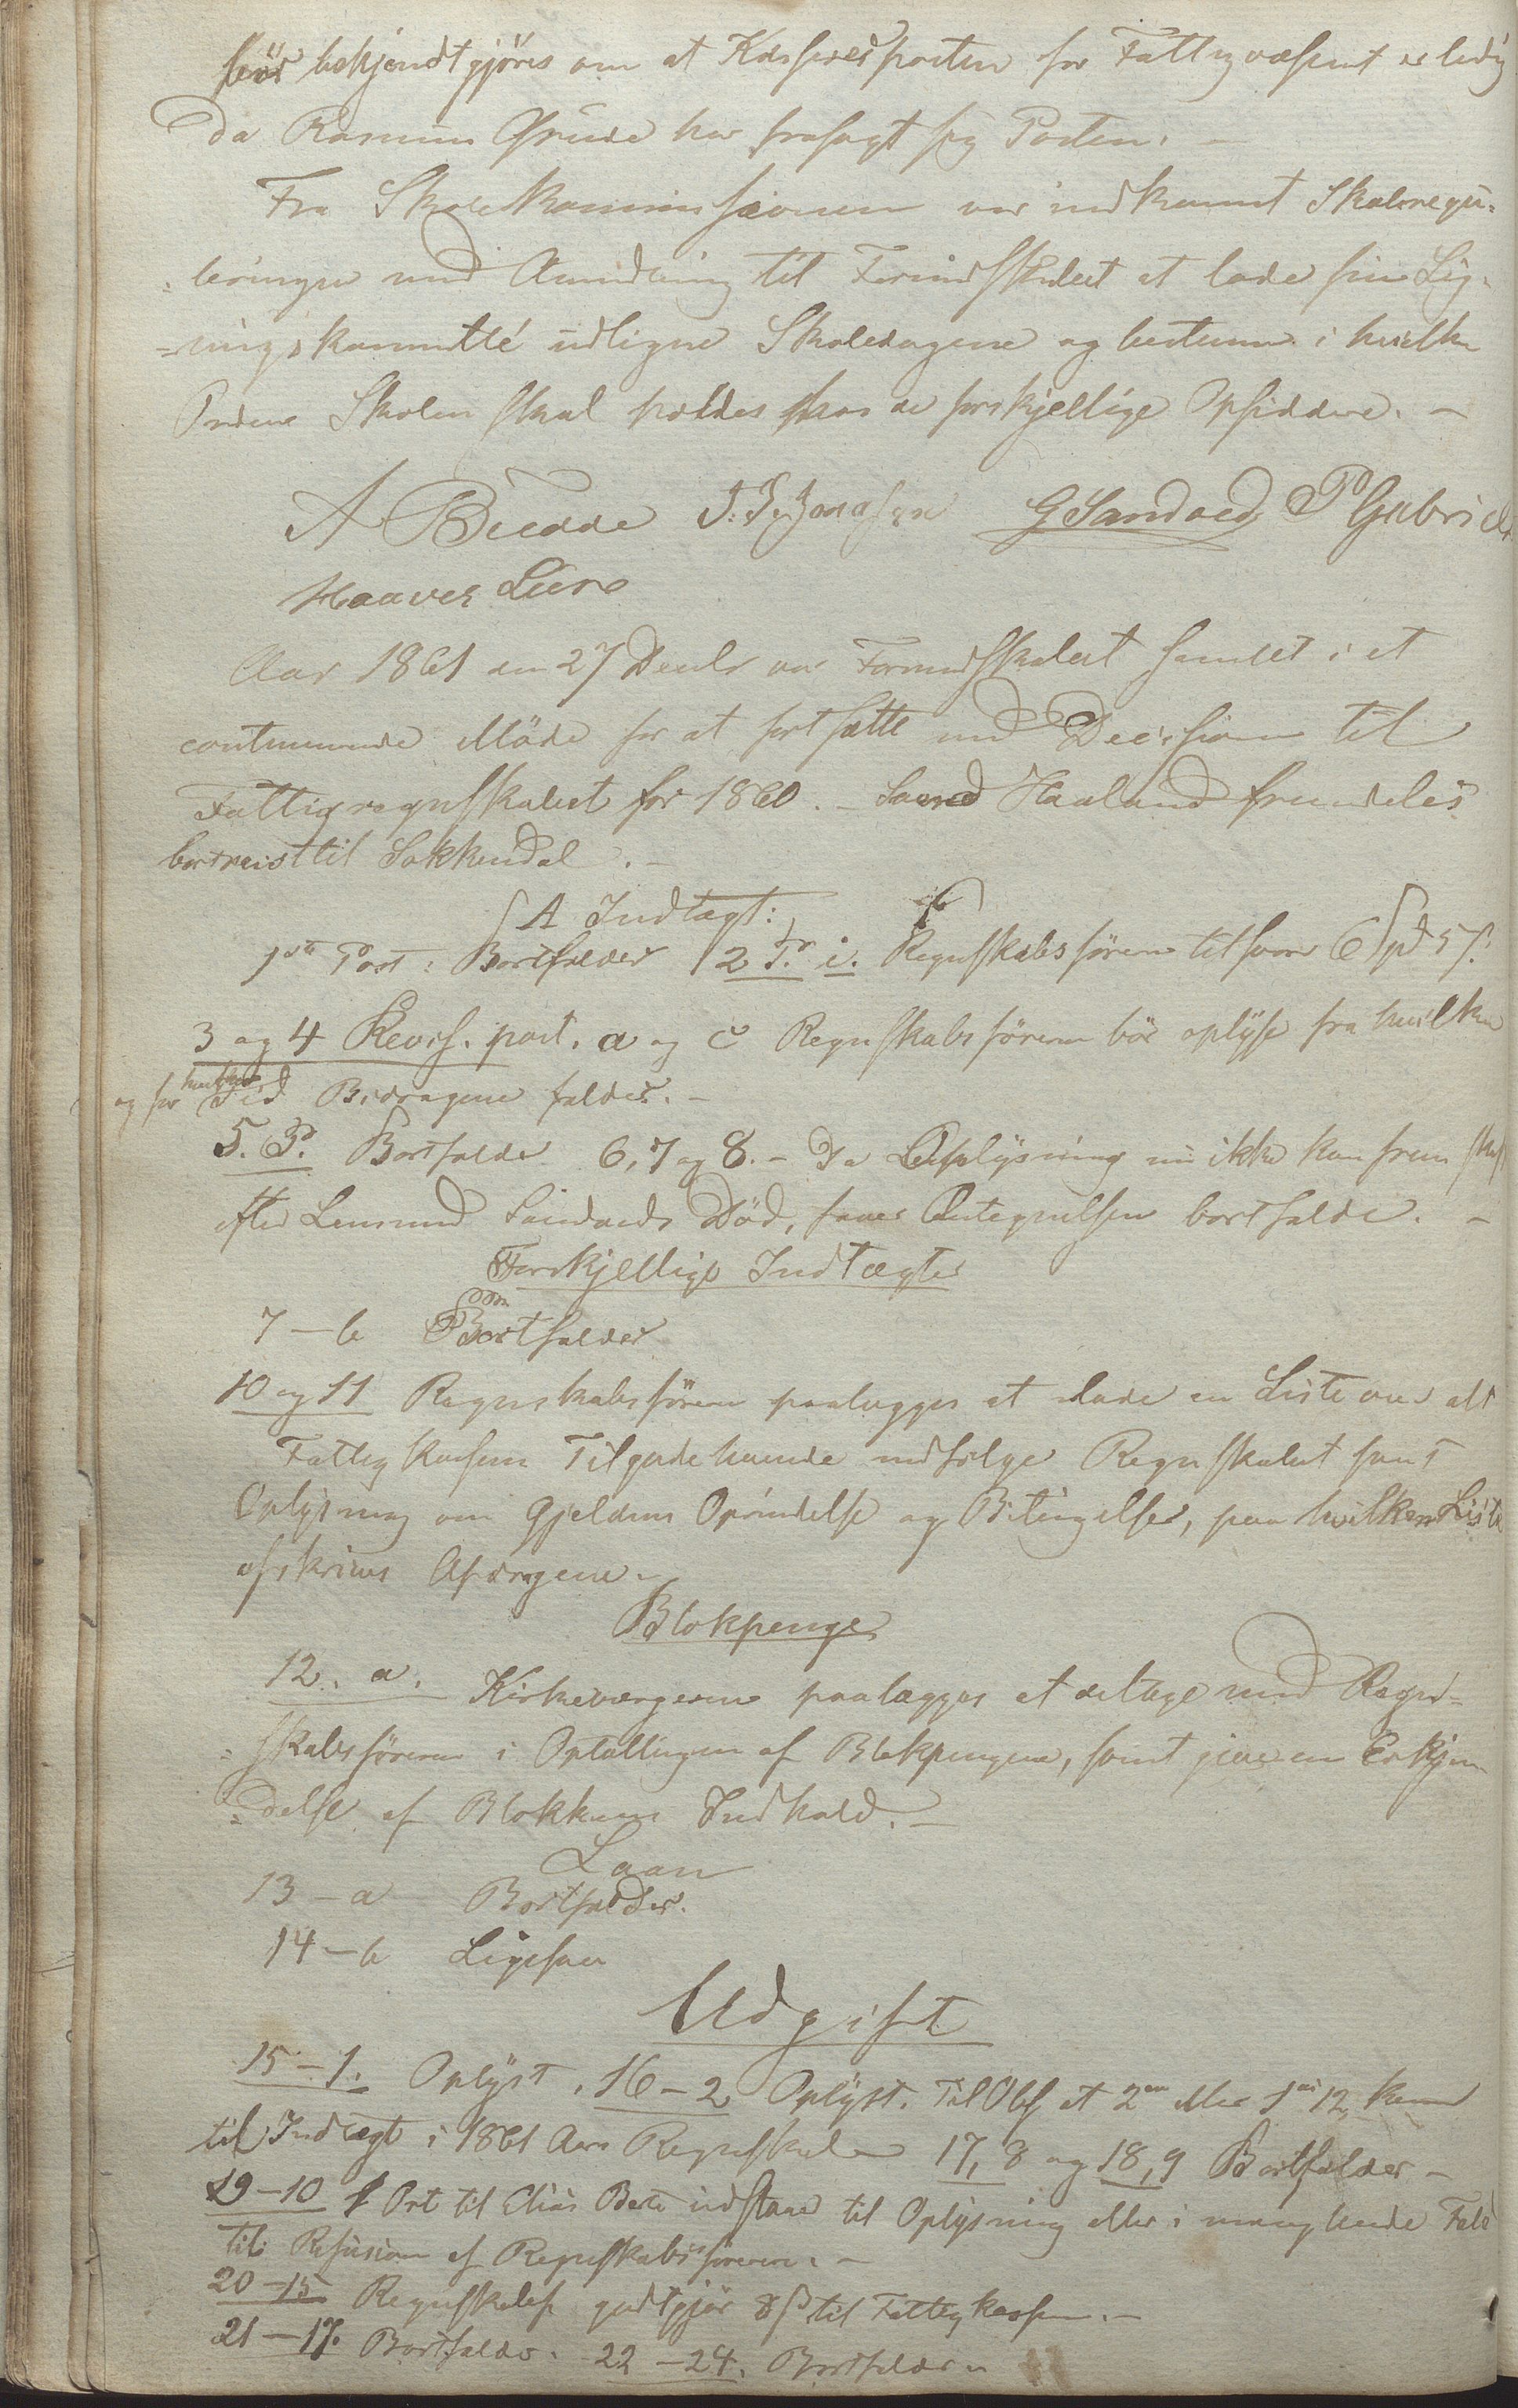 bør bekjendtgjöres om at Kasserérposten for Fattigvæsenet er ledig
da Rasmus Grude har frasagt sig Posten. –
Fra Skolekommissionen var indkommet Skoleregu-
-leringen med Anmodning til Formandskabet at lade sin Lig-
-ningskommitté udligne Skoledagene og bestemme i hvilken
Orden Skolen skal holdes hos de forskjellige Opsiddere. –
A Buedde G Sandved P Gabriels
Haaver Lura
Aar 1861 den 27 Decbr var Formandskabet samlet i et
continuerende Möde for at fortsætte med Decission til
Fattigregnskabet for 1860. – Haaland fremdeles
bortreist til Sokkendal. –
A Indtægt:
1ste Post: Bortfalder 2 P. i. Regnskabsföreren tilsvarer 6 Spd 5 ß.
3 og 4 Revis. post. a og c Regnskabsföreren bör oplyse fra hvilken
og for hvilken Tid Bidragene falder. –
5. P. Bortfalder 6, 7 og 8. – Da Oplysning nu ikke kan frem
efter Lensmand Sandveds Död, faaer Antegnelsen bortfalde. –
Forskjellige Indtægter
7 – b Bortfalder
10 og 11 Regnskabsföreren paalægges at lave en Liste over alt
Fattigkassens Tilgodehavende ifölge Regnskabet samt
Oplysning om Gjeldens Oprindelse og Betingelser, paa hvilken Liste
afskrives Afdragene.
Blokpenge
12. a. Kirkeværgerne paalægges at deltage med Regn-
-skabsföreren i Optællingen af Blokpengene, samt give en Erkjen
-delse af Blokkens Indhold. –
Laan
13 – a Bortfalder.
14 – b Ligesaa
Udgift
15 – 1. Oplyst. 16 – 2 Oplyst. Til Obs at 2 eller 1 12
til Indtægt i 1861 Aars Regnskab 17, 8 og 18, 9 Bortfalder –
19 – 10 1 Ort til Elias udstaar til Oplysning eller i manglende Fald
til Refusion af Regnskabsföreren. –
20 – 15 Regnskabsf godtgjör 8 ß til Fattigkassen. –
21 – 17. Bortfalder. 22 – 24. Bortfalder